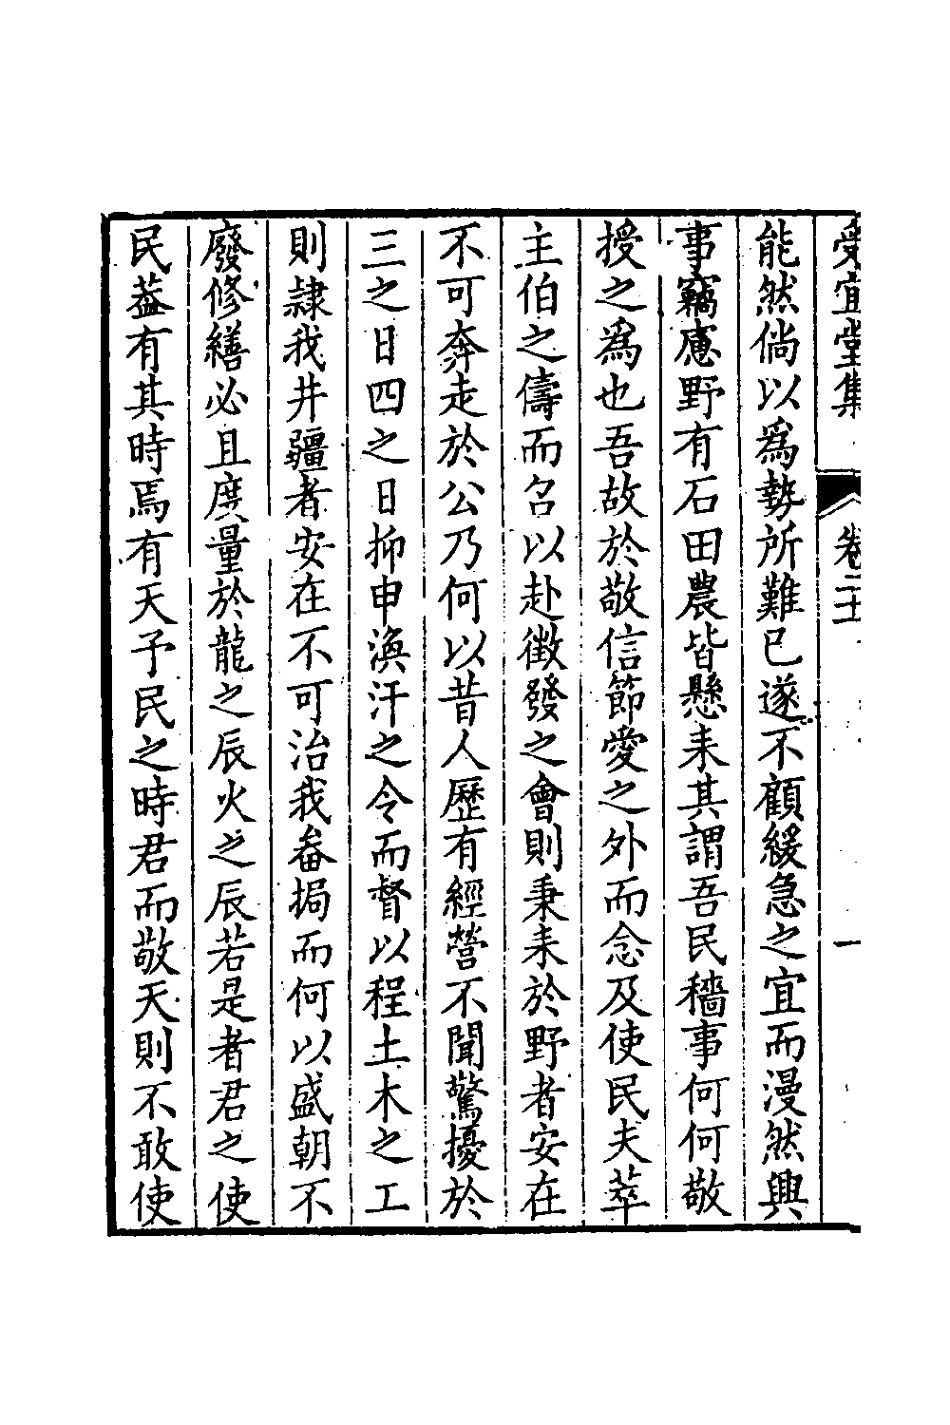 受宜堂集 卷二十一 一
能然倘以爲勢所難已遂不顧緩急之宜而漫然興
事竊慮野有石田農皆懸耒其謂吾民穡事何何敬
授之爲也吾故於敬信節愛之外而念及使民夫萃
主伯之儔而召以赴徵發之會則秉耒於野者安在
不可奔走於公乃何以昔人歷有經營不聞驚擾於
三之日四之日抑申渙汗之令而督以程土木之工
則隷我井疆者安在不可治我畚挶而何以盛朝不
廢修繕必且度量於龍之辰火之辰若是者君之使
民葢有其時焉有天予民之時君而敬天則不敢使